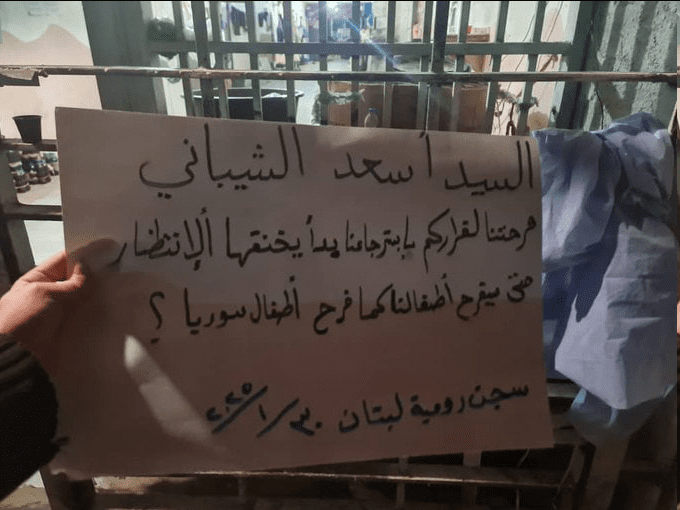 السيد أسعد الشيباني
فرحتنا لقراركم بإسترجاعنا بدأ يخنقها ألإنتظار
متى سيفرح أطفالنا كما فرح أطفال سوريا ؟
سجن رومية لبنان ٣٠/١/٢٠٢٥